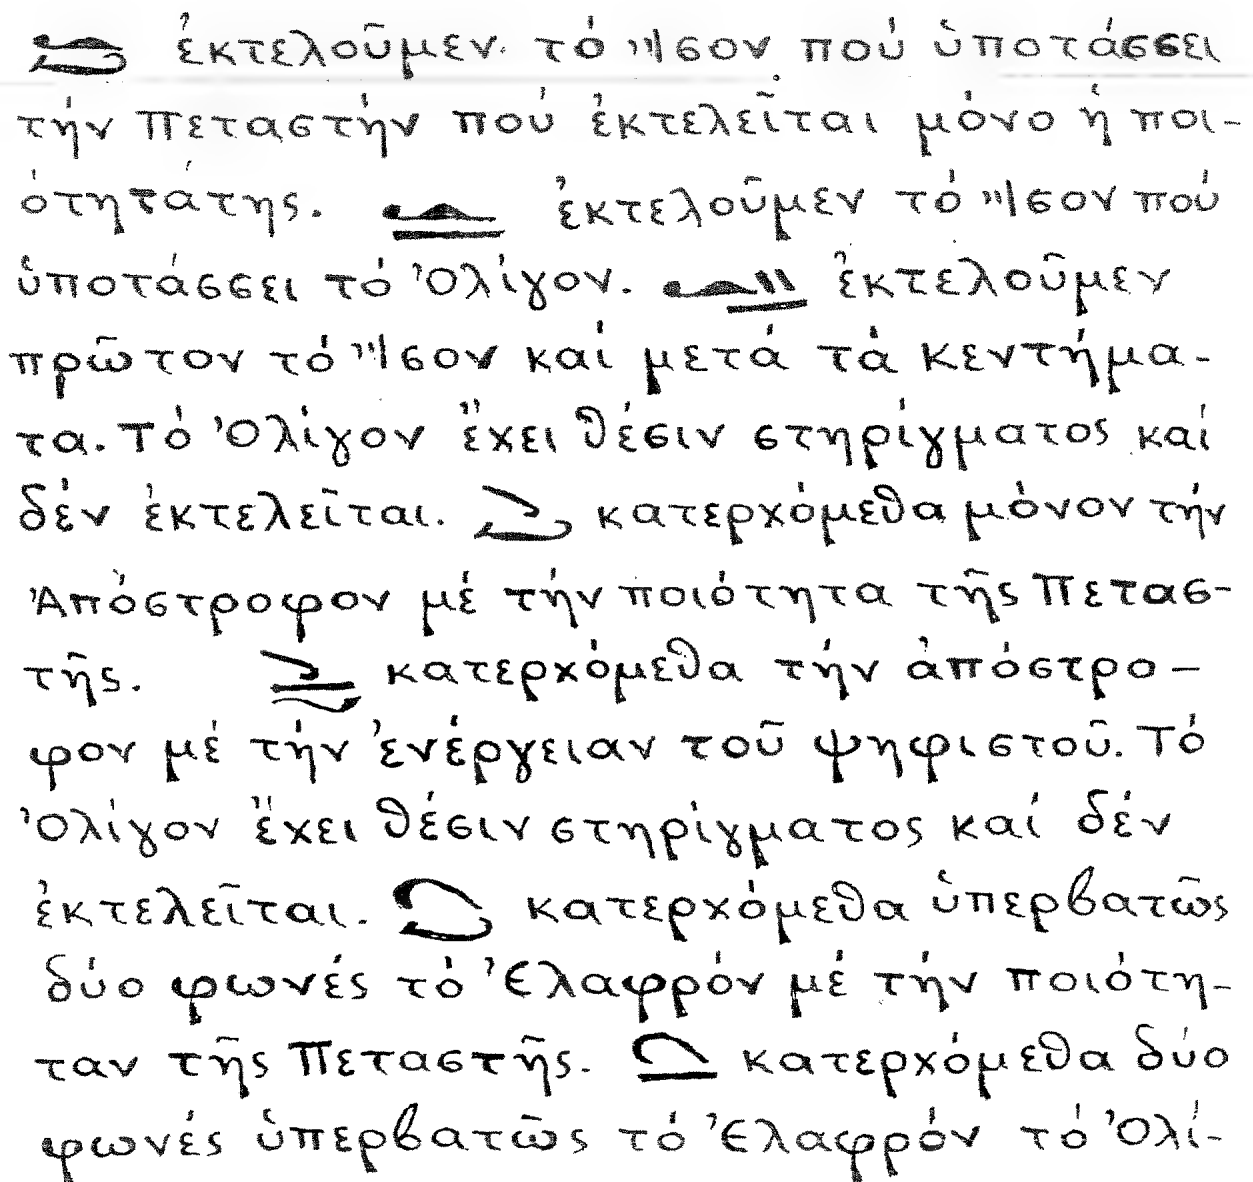 ἐκτελοῦμεν τό Ἴσον πού ὑποτάσσει
τήν Πεταστήν πού ἐκτελεῖται μόνο ἡ ποι-
ότητά της. ἐκτελοῦμεν τό Ἴσον πού
ὑποτάσσει τό Ὀλίγον. ἐκτελοῦμεν
πρῶτον τό Ἴσον καί μετά τά κεντήμα-
τα. Τό Ὀλίγον ἔχει θέσιν στηρίγματος καί
δέν ἐκτελεῖται. κατερχόμεθα μόνον τήν
Ἀπόστροφον μέ τήν ποιότητα τῆς Πετασ-
τῆς. κατερχόμεθα τήν ἀπόστρο-
φον μέ τήν ἐνέργειαν τοῦ ψηφιστοῦ. Τό
Ὀλίγον ἔχει θέσιν στηρίγματος καί δέν
ἐκτελεῖται. κατερχόμεθα ὑπερβατῶς
δύο φωνές τό Ἐλαφρόν μέ τήν ποιότη-
ταν τῆς Πεταστῆς. κατερχόμεθα δύο
φωνές ὑπερβατῶς τό Ἐλαφρόν τό Ὀλί-